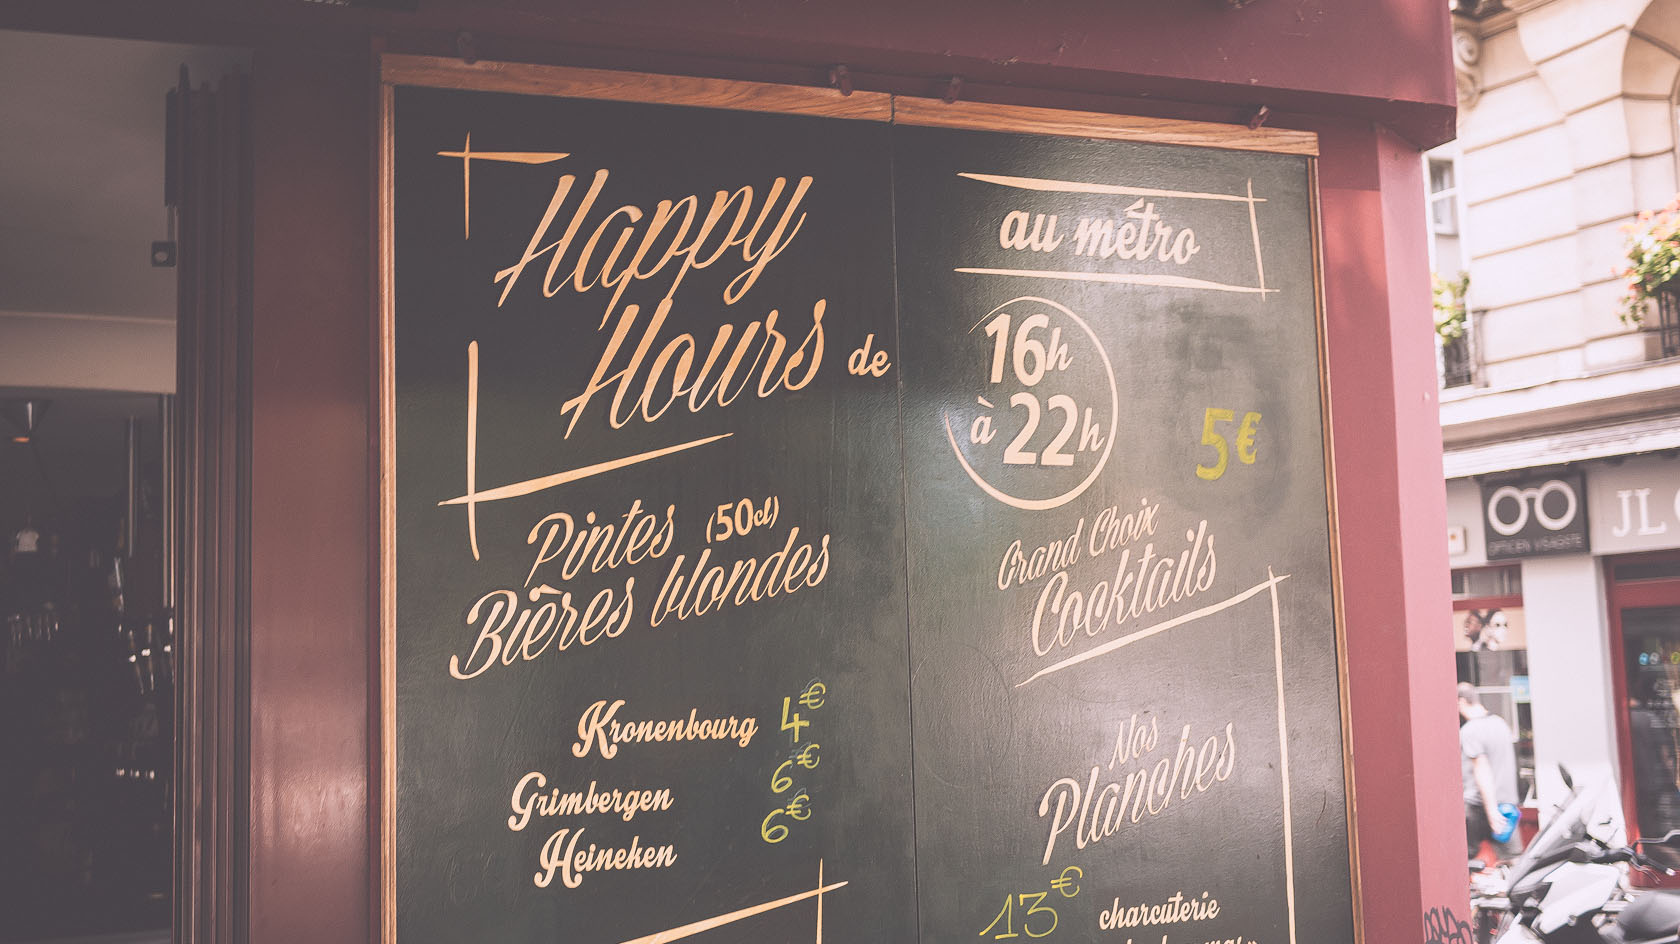 Happy
Hours de
Pintes (50cl)
Bières blondes
Kronenbourg 4€
Grimbergen 6€
Heineken 6€
au métro
16h
à 22h
5€
Grand Choix
Cocktails
Nos
Planches
13€ charcuterie
OPTICIEN VISAGISTE
JL